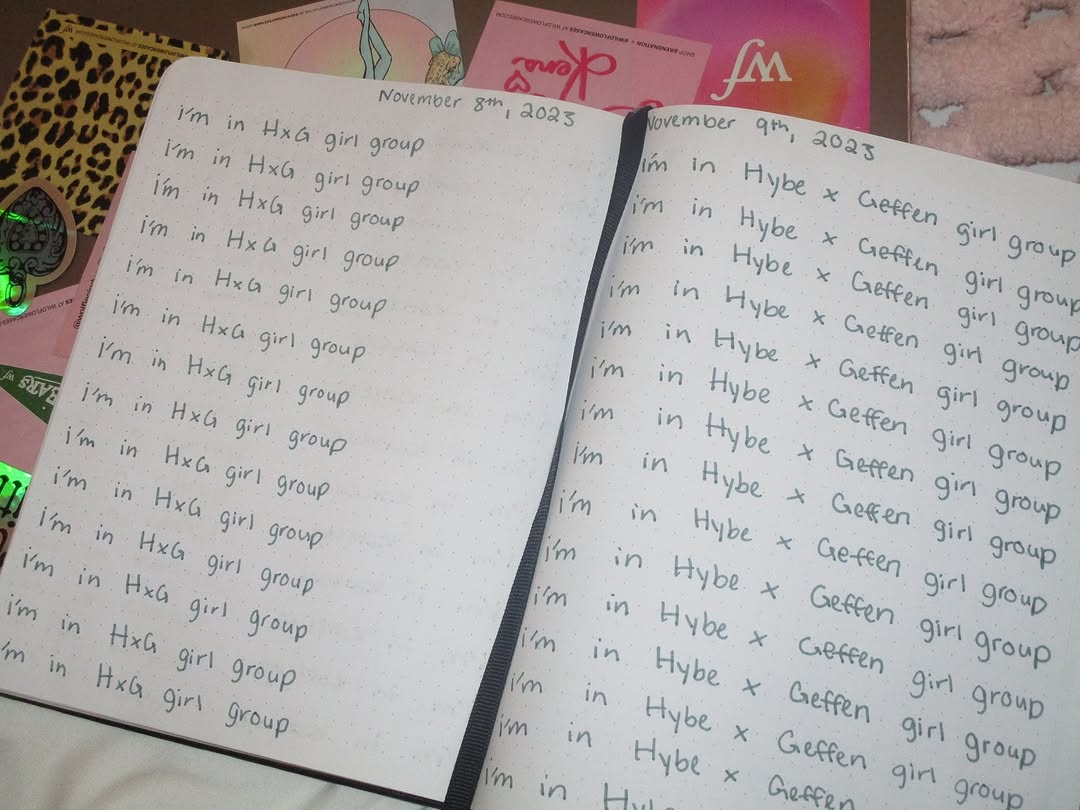 wf
November 8th, 2023
i'm in HxG girl group
i'm in HxG girl group
i'm in HxG girl group
i'm in HxG girl group
i'm in HxG girl group
i'm in HxG girl group
i'm in HxG girl group
i'm in HxG girl group
i'm in HxG girl group
i'm in HxG girl group
i'm in HxG girl group
i'm in HxG girl group
i'm in HxG girl group
i'm in HxG girl group
November 9th, 2023
i'm in Hybe x Geffen girl group
i'm in Hybe x Geffen girl group
i'm in Hybe x Geffen girl group
i'm in Hybe x Geffen girl group
i'm in Hybe x Geffen girl group
i'm in Hybe x Geffen girl group
i'm in Hybe x Geffen girl group
i'm in Hybe x Geffen girl group
i'm in Hybe x Geffen girl group
i'm in Hybe x Geffen girl group
i'm in Hybe x Geffen girl group
i'm in Hybe x Geffen girl group
i'm in Hybe x Geffen girl group
i'm in Hybe x Geffen
i'm in